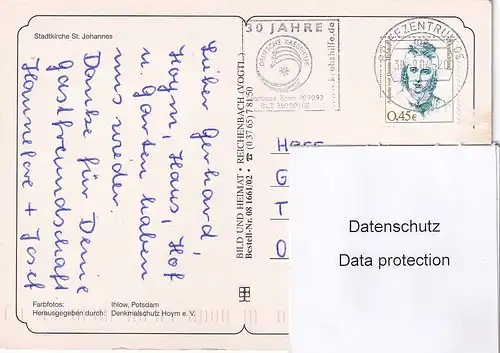 Stadtkirche St. Johannes
Lieber Gerhard,
Hoym, Haus, Hof
u. Garten haben
uns wieder.
Danke für Deine
Gastfreundschaft
Hannelore + Josef
Farbfotos: Ihlow, Potsdam
Herausgegeben durch: Denkmalschutz Hoym e. V.
BILD UND HEIMAT • REICHENBACH (VOGTL.)
Bestell-Nr. 08 1661/02 • ☎ (0 37 65) 7 81 50
30 JAHRE
DEUTSCHE KREBSHILFE
www.krebshilfe.de
BRIEFZENTRUM 06
0,45€
Herr
G
T
O
Datenschutz
Data protection